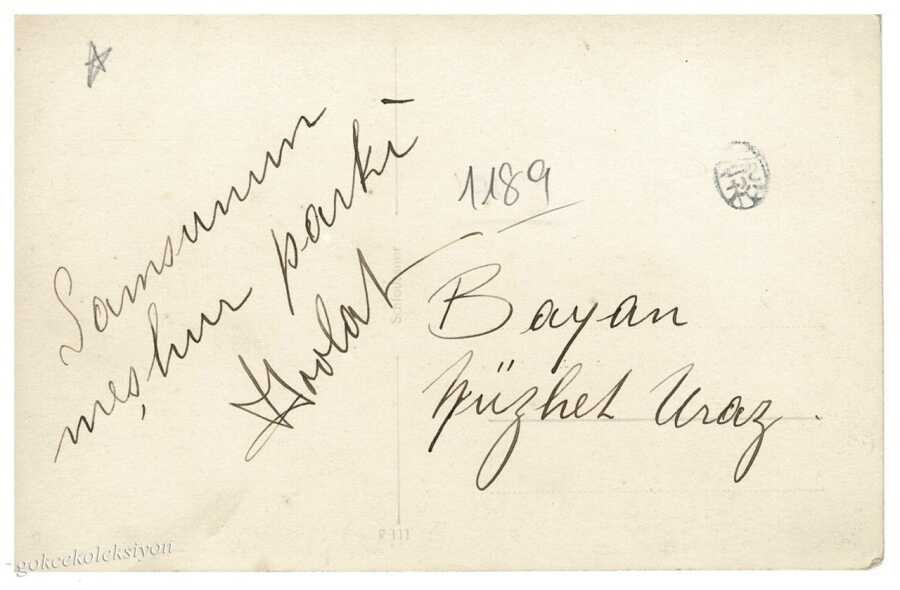 Samsunun
meşhur parkı
1189
Bayan
Nüzhet Uraz.
P 111
-gokcekoleksiyon